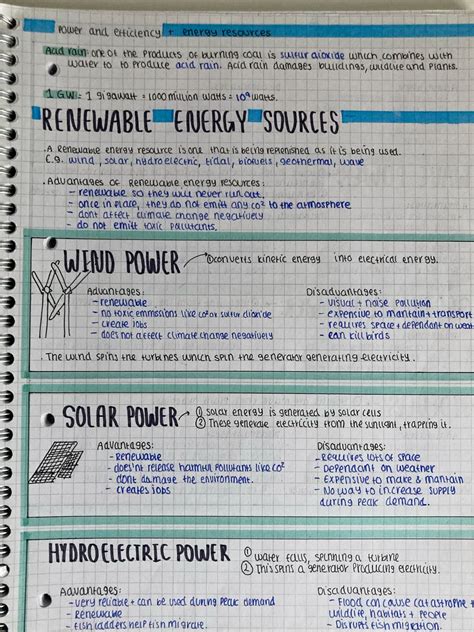 Power and efficiency + energy resources
Acid rain: one of the products of burning coal is sulfur dioxide which combines with
water to to produce acid rain. Acid rain damages buildings, wildlife and plants.
1 GW = 1 gigawatt = 1000 million watts = 10⁹ watts.
RENEWABLE ENERGY SOURCES
. A Renewable energy resource is one that is being replenished as it is being used.
E.g. wind, solar, hydroelectric, tidal, biofuels, geothermal, wave
. Advantages of Renewable energy resources:
- renewable so they will never run out.
- once in place, they do not emitt any co² to the atmosphere
- dont affect climate change negatively
- do not emitt toxic pollutants.
WIND POWER
① converts kinetic energy into electrical energy.
Advantages:
- renewable
- no toxic emmssions like co² or sulfur dioxide
- create jobs
- does not affect climate change negatively
Disadvantages:
- visual + noise pollution
- expensive to mantain + transport
- requires space + dependant on weat
- can kill birds
. The wind spins the turbines which spin the generator generating electricity.
SOLAR POWER
① solar energy is generated by solar cells
② These generate electricity from the sunlight, trapping it.
Advantages:
- Renewable
- does'nt release harmful pollutants like co²
- dont damage the environment.
- creates jobs
Disadvantages:
- Requires lots of space
- Dependant on weather
- Expensive to make & mantain
- No way to increase supply
during peak demand.
HYDROELECTRIC POWER
① water falls, spinning a turbine
② This spins a generator producing electricity.
Advantages:
- very reliable + can be used during peak demand
- Renewable
- fish ladders help fish migrate.
Disadvantages:
- Flood can cause catastrophe +
wildlife, habitats + people
- Disrupts fish migration.